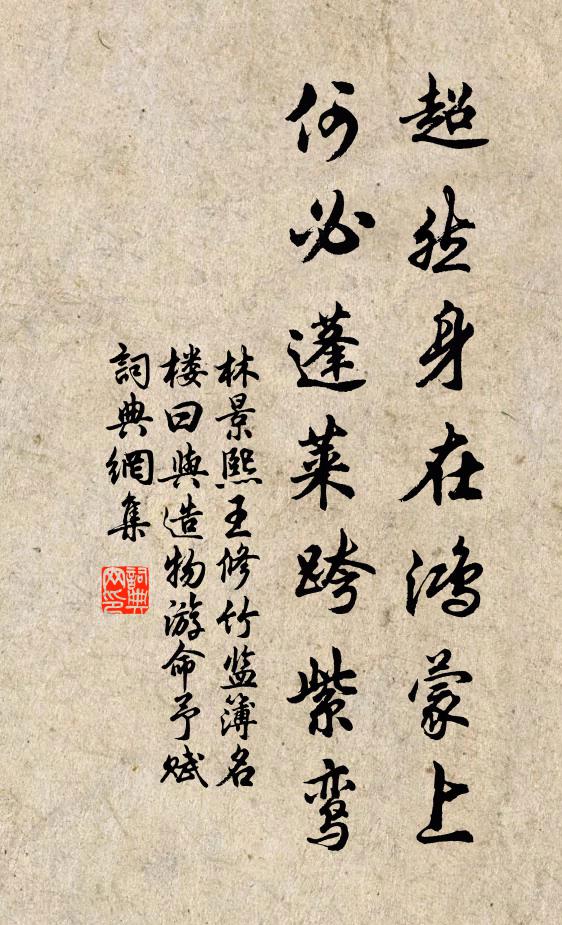 超然身在鸿蒙上
何必蓬莱跨紫鸾
林景熙王修竹监簿名
楼曰與造物游命予赋
詞典網集
詞典
网印